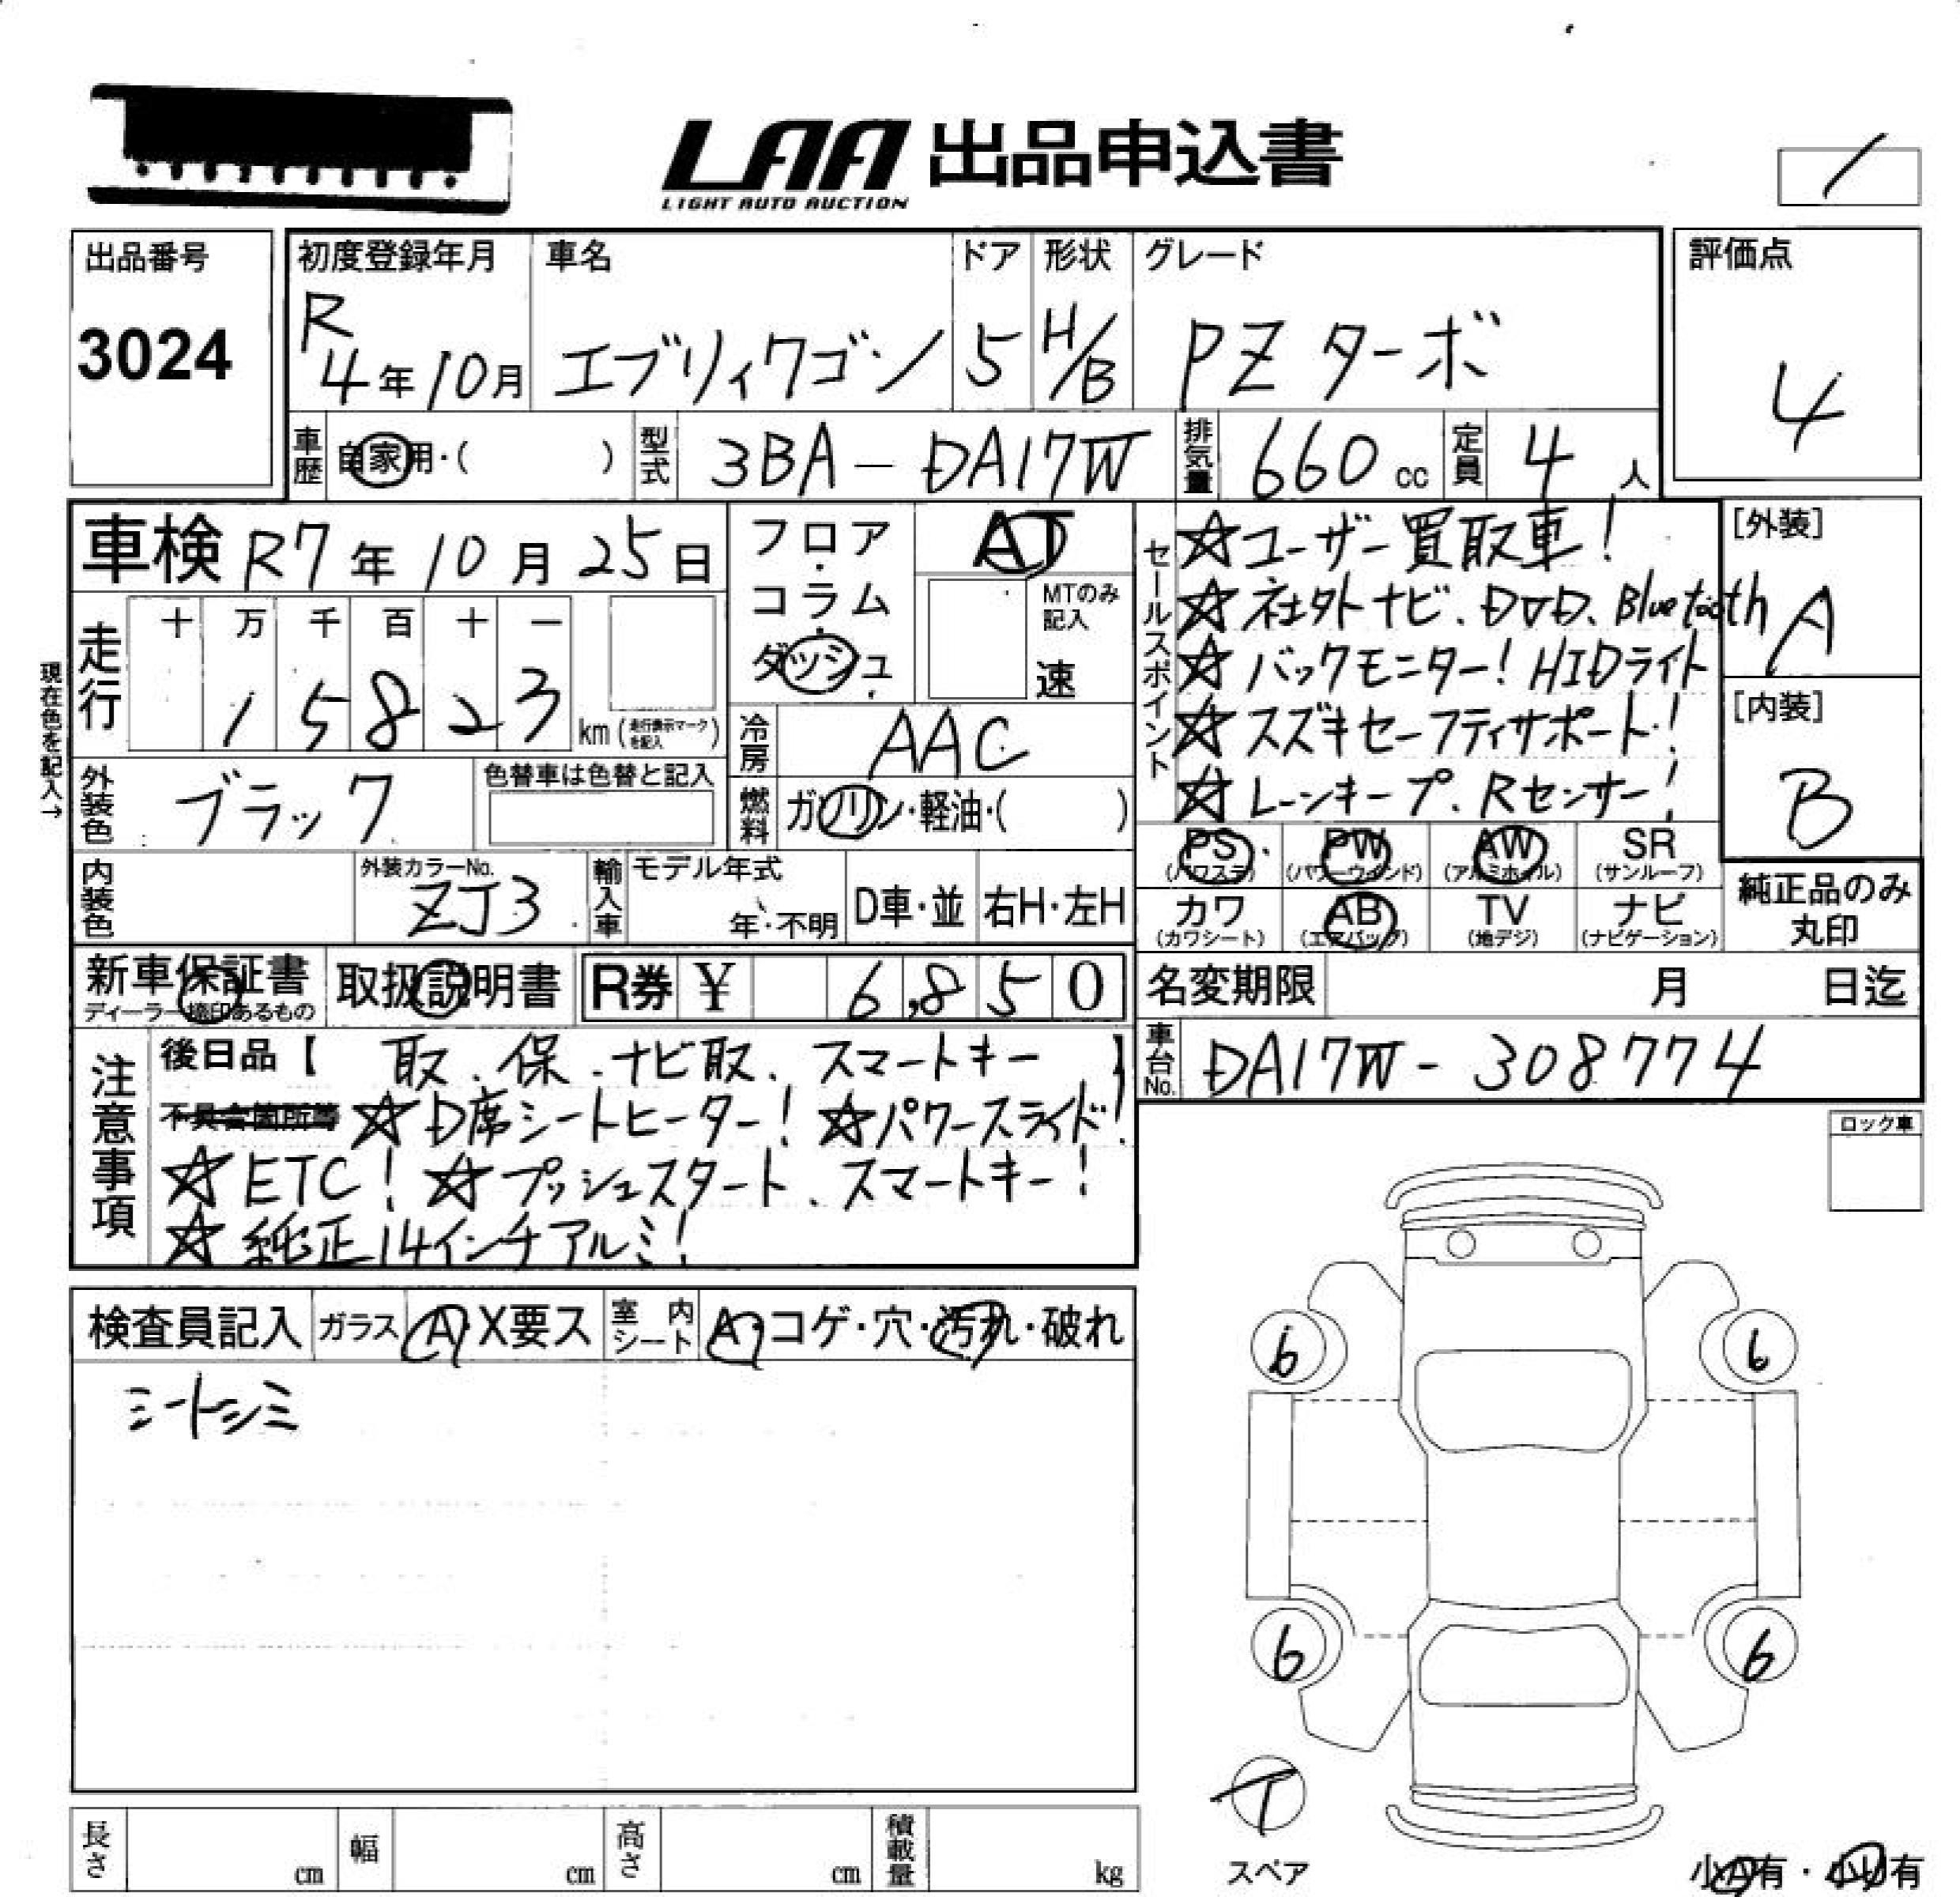 LAA 出品申込書
LIGHT AUTO AUCTION
出品番号
3024
初度登録年月
R
4年10月
車名
エブリィワゴン
ドア
5
形状
H/B
グレード
PZ ターボ
評価点
4
車歴
自家用・( )
型式
3BA-DA17W
排気量
660 cc
定員
4 人
車検 R7年10月25日
フロア・コラム・ダッシュ
AT
MTのみ記入
速
走行
十 万 千 百 十 一
1 5 8 2 3 km (走行表示マークを記入)
現在色を記入→
冷房
AAC
外装色
ブラック
色替車は色替と記入
燃料
ガソリン・軽油・( )
内装色
外装カラーNo.
ZJ3
輸入車
モデル年式
年・不明
D車・並
右H・左H
セールスポイント
☆ユーザー買取車!
☆社外ナビ、DVD、Bluetooth
☆バックモニター! HIDライト
☆スズキセーフティサポート!
☆レーンキープ、Rセンサー!
[外装]
A
[内装]
B
PS (パワステ)
PW (パワーウインド)
AW (アルミホイル)
SR (サンルーフ)
カワ (カワシート)
AB (エアバック)
TV (地デジ)
ナビ (ナビゲーション)
純正品のみ丸印
新車保証書
ディーラー捺印あるもの
取扱説明書
R券 ¥ 6,850
名変期限 月 日迄
車台No.
DA17W-308774
注意事項
後日品【 取、保、ナビ取、スマートキー 】
不具合箇所等 ☆D席シートヒーター! ☆パワースライド!
☆ETC! ☆プッシュスタート、スマートキー!
☆純正14インチアルミ!
ロック車
検査員記入
ガラス A・X要ス
室内シート A・コゲ・穴・汚れ・破れ
シートシミ
6 6
6 6
T
スペア
長さ cm
幅 cm
高さ cm
積載量 kg
小A有・小U有